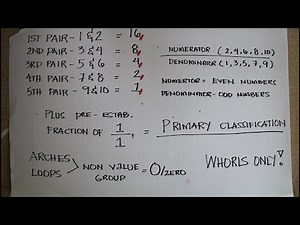 1ST PAIR - 1 & 2 = 16
2ND PAIR - 3 & 4 = 8
3RD PAIR - 5 & 6 = 4
4TH PAIR - 7 & 8 = 2
5TH PAIR - 9 & 10 = 1
NUMERATOR (2,4,6,8,10)
DENOMINATOR (1,3,5,7,9)
NUMERTOR = EVEN NUMBERS
DENOMINATOR - ODD NUMBERS
PLUS PRE-ESTAB.
FRACTION OF 1/1 = PRIMARY CLASSIFICATION
ARCHES
LOOPS > NON VALUE GROUP = 0/ZERO
WHORLS ONLY!